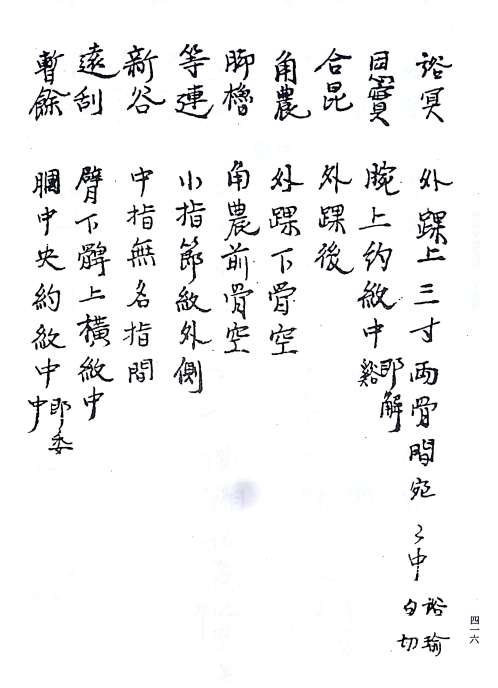 谽冥 外踝上三寸兩骨間宛〻中 谽瑜白切
恩寶 腕上約紋中 即解谿
合昆 外踝後
角農 外踝下骨空
脚櫓 角農前骨空
等連 小指節紋外側
新谷 中指無名指間
遠刮 臂下髀上橫紋中
暫餘 膕中央約紋中 即委中
四一六